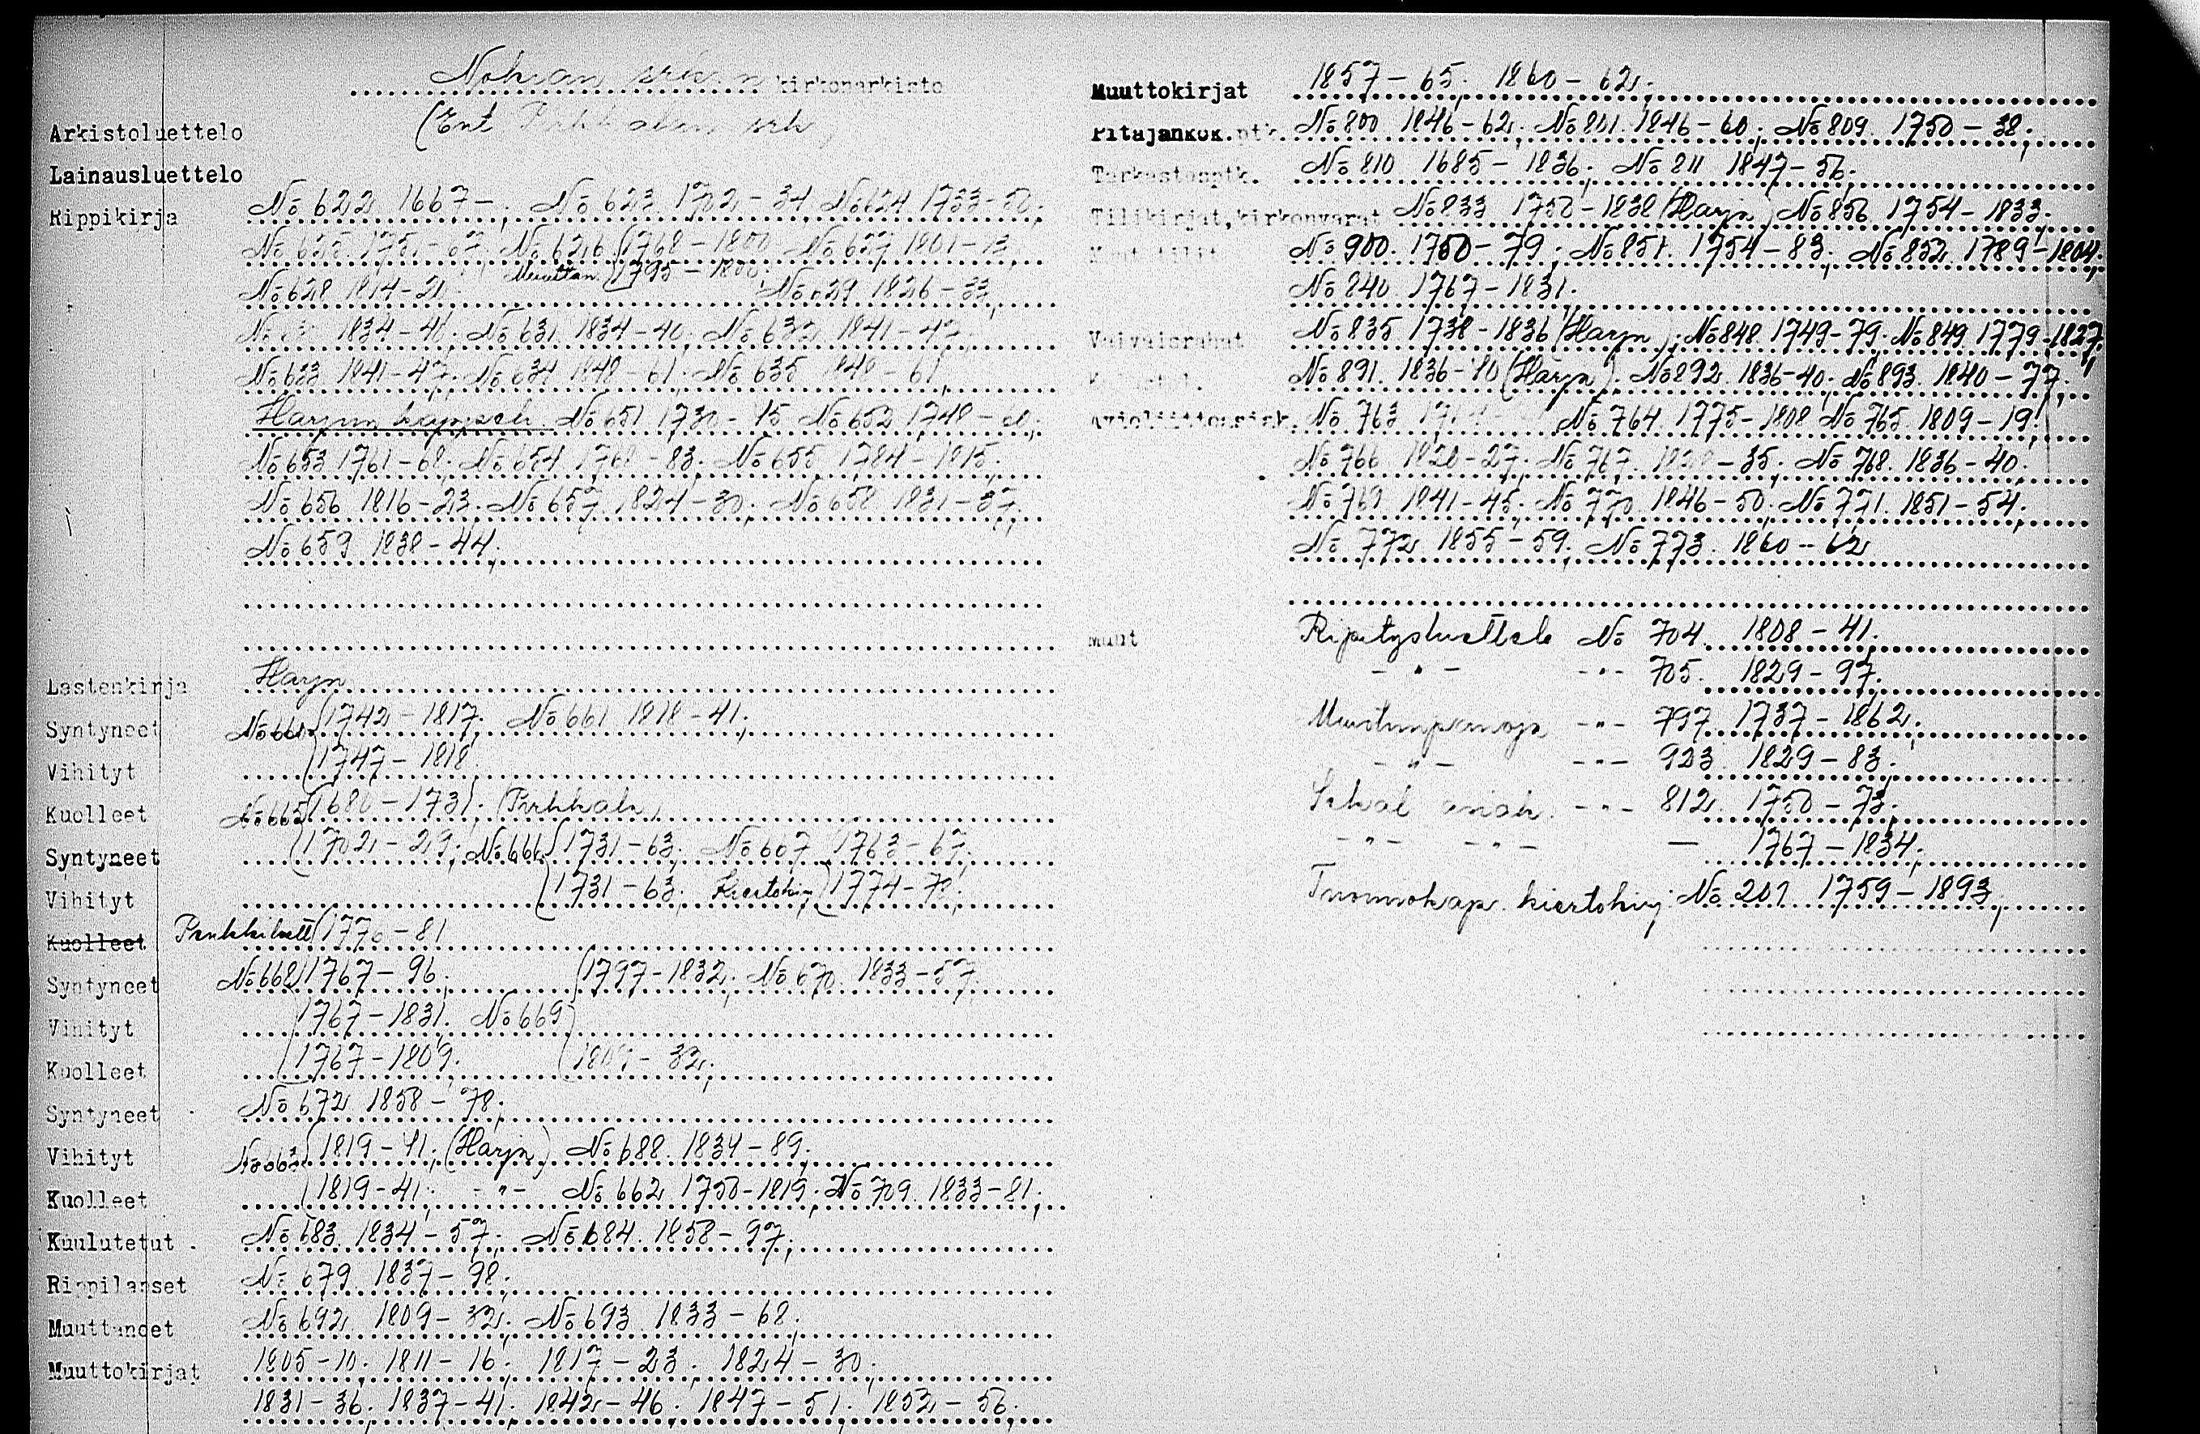 Nokian srk:n kirkonarkisto
(Ent Pirkkalan srk)
Arkistoluettelo
Lainausluettelo
Rippikirja No 622 1667- ; No 623 1702-34, No 624 1733-50;
No 625 1751-67. No 626 (1768-1800 No 627 1801-13,
Muuttan. (1795-1800
No 628 1814-21. No 629 1826-33,
1834-41. No 631 1834-40. No 632 1841-47.
No 633 1841-47. No 634 1848-61. No 635 1848-61,
Harjun kappeli No 651 1730-45 No 652 1748-61;
No 653 1761-68; No 654 1768-83; No 655 1784-1815;
No 656 1816-23. No 657 1824-30; No 658 1831-37;
No 659 1838-44.
Lastenkirja Harjn
Syntyneet No 660 (1742-1817; No 661 1818-41;
Vihityt (1747-1818
Kuolleet No 665 (1680-1731. (Pirkkala)
Syntyneet (1702-29; No 666 (1731-63; No 667 (1763-67;
Vihityt (1731-63; Kiertokirj (1774-78;
Kuolleet Penkkiluett (1770-81
Syntyneet No 668 (1767-96; (1797-1832; No 670 1833-57.
Vihityt (1767-1831. No 669
Kuolleet (1767-1809. (1809-32;
Syntyneet No 672 1858-78;
Vihityt No 663 (1819-41; (Harjn) No 688. 1834-89;
Kuolleet (1819-41; -"- No 662 1750-1819; No 709. 1833-81;
Kuulutetut No 683. 1834-57; No 684. 1858-97;
Rippilapset No 679. 1837-98;
Muuttaneet No 692. 1809-32; No 693 1833-68;
Muuttokirjat 1805-10; 1811-16; 1817-23; 1824-30;
1831-36; 1837-41; 1842-46; 1847-51; 1852-56;
Muuttokirjat 1857-65; 1860-62;
Pitäjänkok.ptk. No 800 1846-62; No 801. 1846-60; No 809. 1750-38;
Tarkastusptk. No 810 1685-1836; No 811 1847-56.
Tilikirjat, kirkonvarat No 833 1750-1838 (Harjn) No 856 1754-1833.
Muut tilit No 900. 1750-79; No 851. 1754-83; No 852 1789-1804;
No 840 1767-1831.
Vaivaisrahat No 835 1738-1836 (Harjn); No 848 1749-79. No 849 1779-1827,
No 891. 1836-40 (Harjn). No 892 1836-40; No 893. 1840-77;
Avioliittoasiak. No 763 No 764 1775-1808 No 765 1809-19;
No 766 1820-27; No 767. 1828-35; No 768. 1836-40.
No 769 1841-45; No 770. 1846-50. No 771. 1851-54;
No 772 1855-59. No 773. 1860-62
Muut Ripitysluettelo No 704. 1808-41.
-"- -"- 705. 1829-97.
Muistiinpanoja -"- 797. 1737-1862;
-"- -"- 923 1829-83.
Sekal. asiak. -"- 812. 1750-73;
-"- -"- — 1767-1834;
Tuomiokap. kiertokirj. No 201 1759-1893,